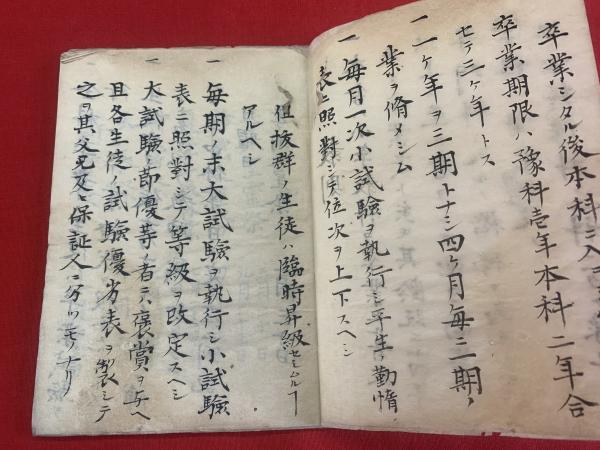 卒業シタル後本科ニ入
卒業期限ハ豫科壱年本科二年合
セテ三ケ年トス
一一ケ年ヲ三期トナシ四ケ月毎ニ一期ノ
業ヲ脩メシム
一毎月一次小試験ヲ執行シ平生ノ勤惰
表ニ照對シテ位次ヲ上下スヘシ
但抜群ノ生徒ハ臨時昇級セシムル
アルヘシ
一毎期ノ末大試験ヲ執行シ小試験
表ニ照對シテ等級ヲ改定スヘシ
大試験ノ節優等ノ者ニハ褒賞ヲ与ヘ
且各生徒ノ試験優劣表ヲ製シテ
之ヲ其父兄及ヒ保証人ニ分ツモノナリ